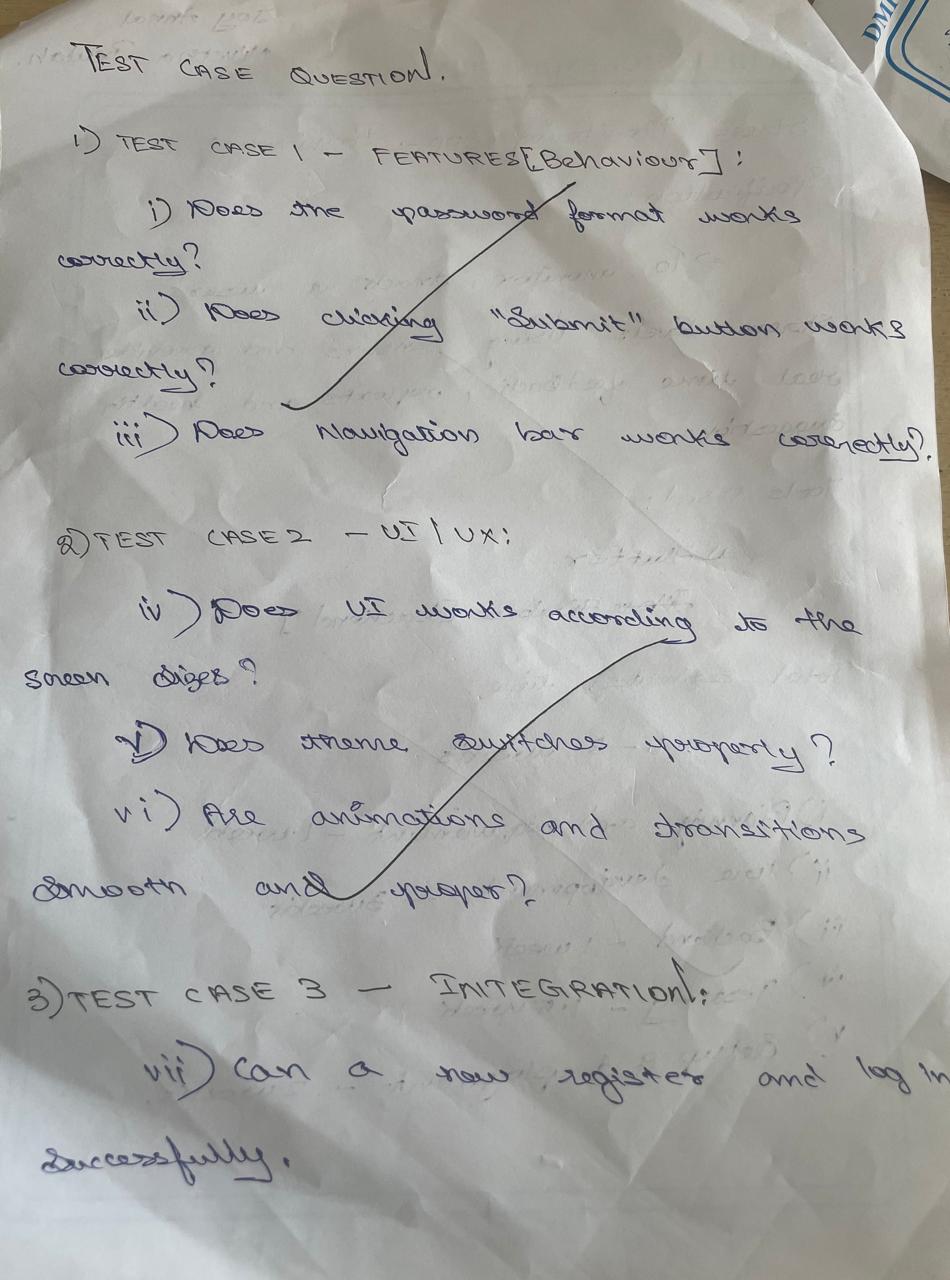 TEST CASE QUESTION.
1) TEST CASE 1 - FEATURES[Behaviour]:
i) Does the password format works
correctly?
ii) Does clicking "Submit" button works
correctly?
iii) Does Navigation bar works correctly?
2) TEST CASE 2 - UI/UX:
iv) Does UI works according to the
screen sizes?
v) Does theme switches properly?
vi) Are animations and transitions
smooth and proper?
3) TEST CASE 3 - INTEGRATION:
vii) Can a new register and log in
successfully.
DMI